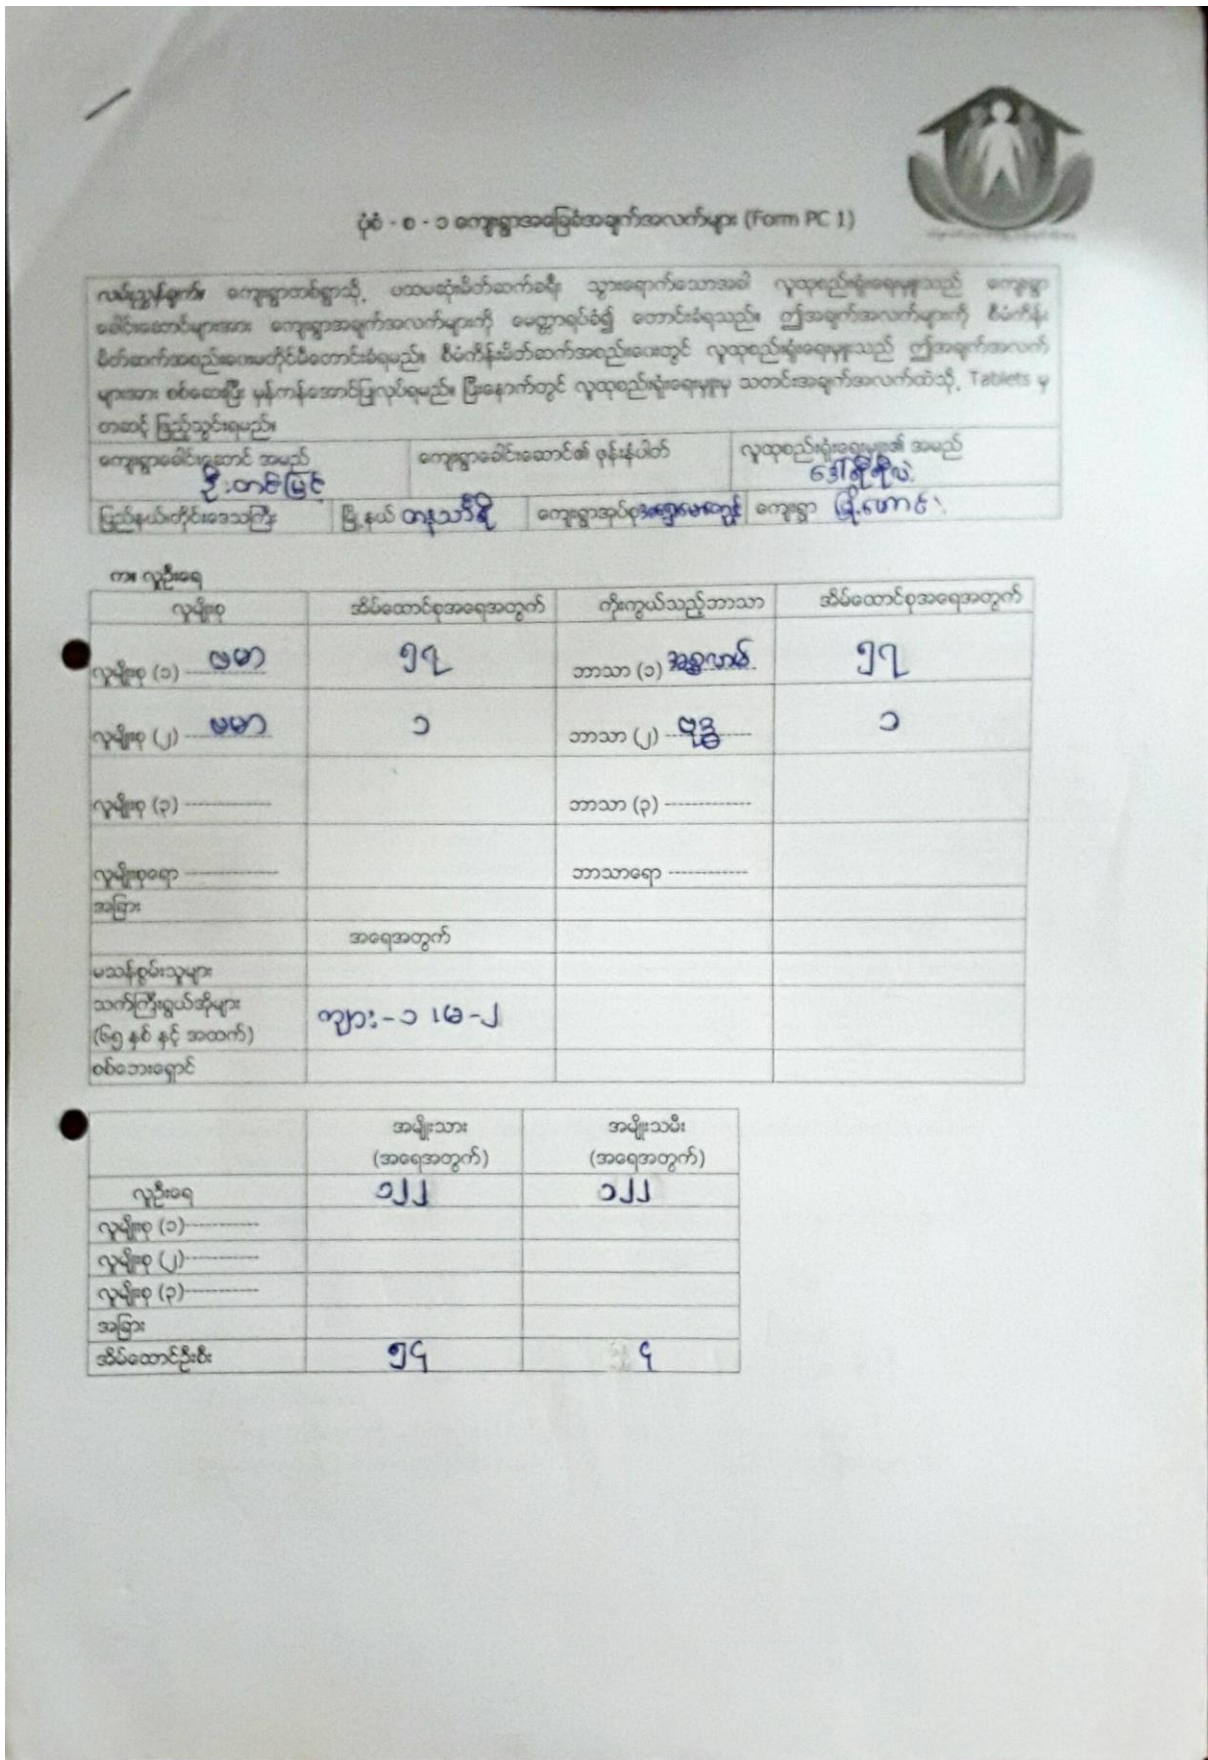 ပုံစံ - စ - ၁ ကျေးရွာအခြေခံအချက်အလက်များ (Form PC 1)
လမ်းညွှန်ချက်။ ကျေးရွာတစ်ရွာသို့ ပထမဆုံးမိတ်ဆက်ခရီး သွားရောက်သောအခါ လူထုစည်းရုံးရေးမှူးသည် ကျေးရွာ
ခေါင်းဆောင်များအား ကျေးရွာအချက်အလက်များကို မေတ္တာရပ်ခံ၍ တောင်းခံရသည်။ ဤအချက်အလက်များကို စီမံကိန်း
မိတ်ဆက်အစည်းဝေးမတိုင်မီတောင်းခံရမည်။ စီမံကိန်းမိတ်ဆက်အစည်းဝေးတွင် လူထုစည်းရုံးရေးမှူးသည် ဤအချက်အလက်
များအား စစ်ဆေးပြီး မှန်ကန်အောင်ပြုလုပ်ရမည်။ ပြီးနောက်တွင် လူထုစည်းရုံးရေးမှူးမှ သတင်းအချက်အလက်ထဲသို့ Tablets မှ
တဆင့် ဖြည့်သွင်းရမည်။
ကျေးရွာခေါင်းဆောင် အမည် ကျေးရွာခေါင်းဆောင်၏ ဖုန်းနံပါတ် လူထုစည်းရုံးရေးမှူး၏ အမည်
ဦးတင်မြင့်
ပြည်နယ်/တိုင်းဒေသကြီး မြို့နယ် တနင်္သာရီ ကျေးရွာအုပ်စု ကျေးရွာ မြို့ဟောင်း
က။ လူဦးရေ
လူမျိုးစု အိမ်ထောင်စုအရေအတွက် ကိုးကွယ်သည့်ဘာသာ အိမ်ထောင်စုအရေအတွက်
လူမျိုးစု (၁) ဗမာ ၅၇ ဘာသာ (၁) အစ္စလာမ် ၅၇
လူမျိုးစု (၂) ဗမာ ၁ ဘာသာ (၂) ဗုဒ္ဓ ၁
လူမျိုးစု (၃) ------------- ဘာသာ (၃) -------------
လူမျိုးစုရော ------------- ဘာသာရော ------------
အခြား
အရေအတွက်
မသန်စွမ်းသူများ
သက်ကြီးရွယ်အိုများ
(၆၅ နှစ် နှင့် အထက်) ကျား-၁ ၊ မ-၂
စစ်ဘေးရှောင်
အမျိုးသား အမျိုးသမီး
(အရေအတွက်) (အရေအတွက်)
လူဦးရေ ၁၂၂ ၁၂၂
လူမျိုးစု (၁)-----------
လူမျိုးစု (၂)-----------
လူမျိုးစု (၃)-----------
အခြား
အိမ်ထောင်ဦးစီး ၅၄ ၄